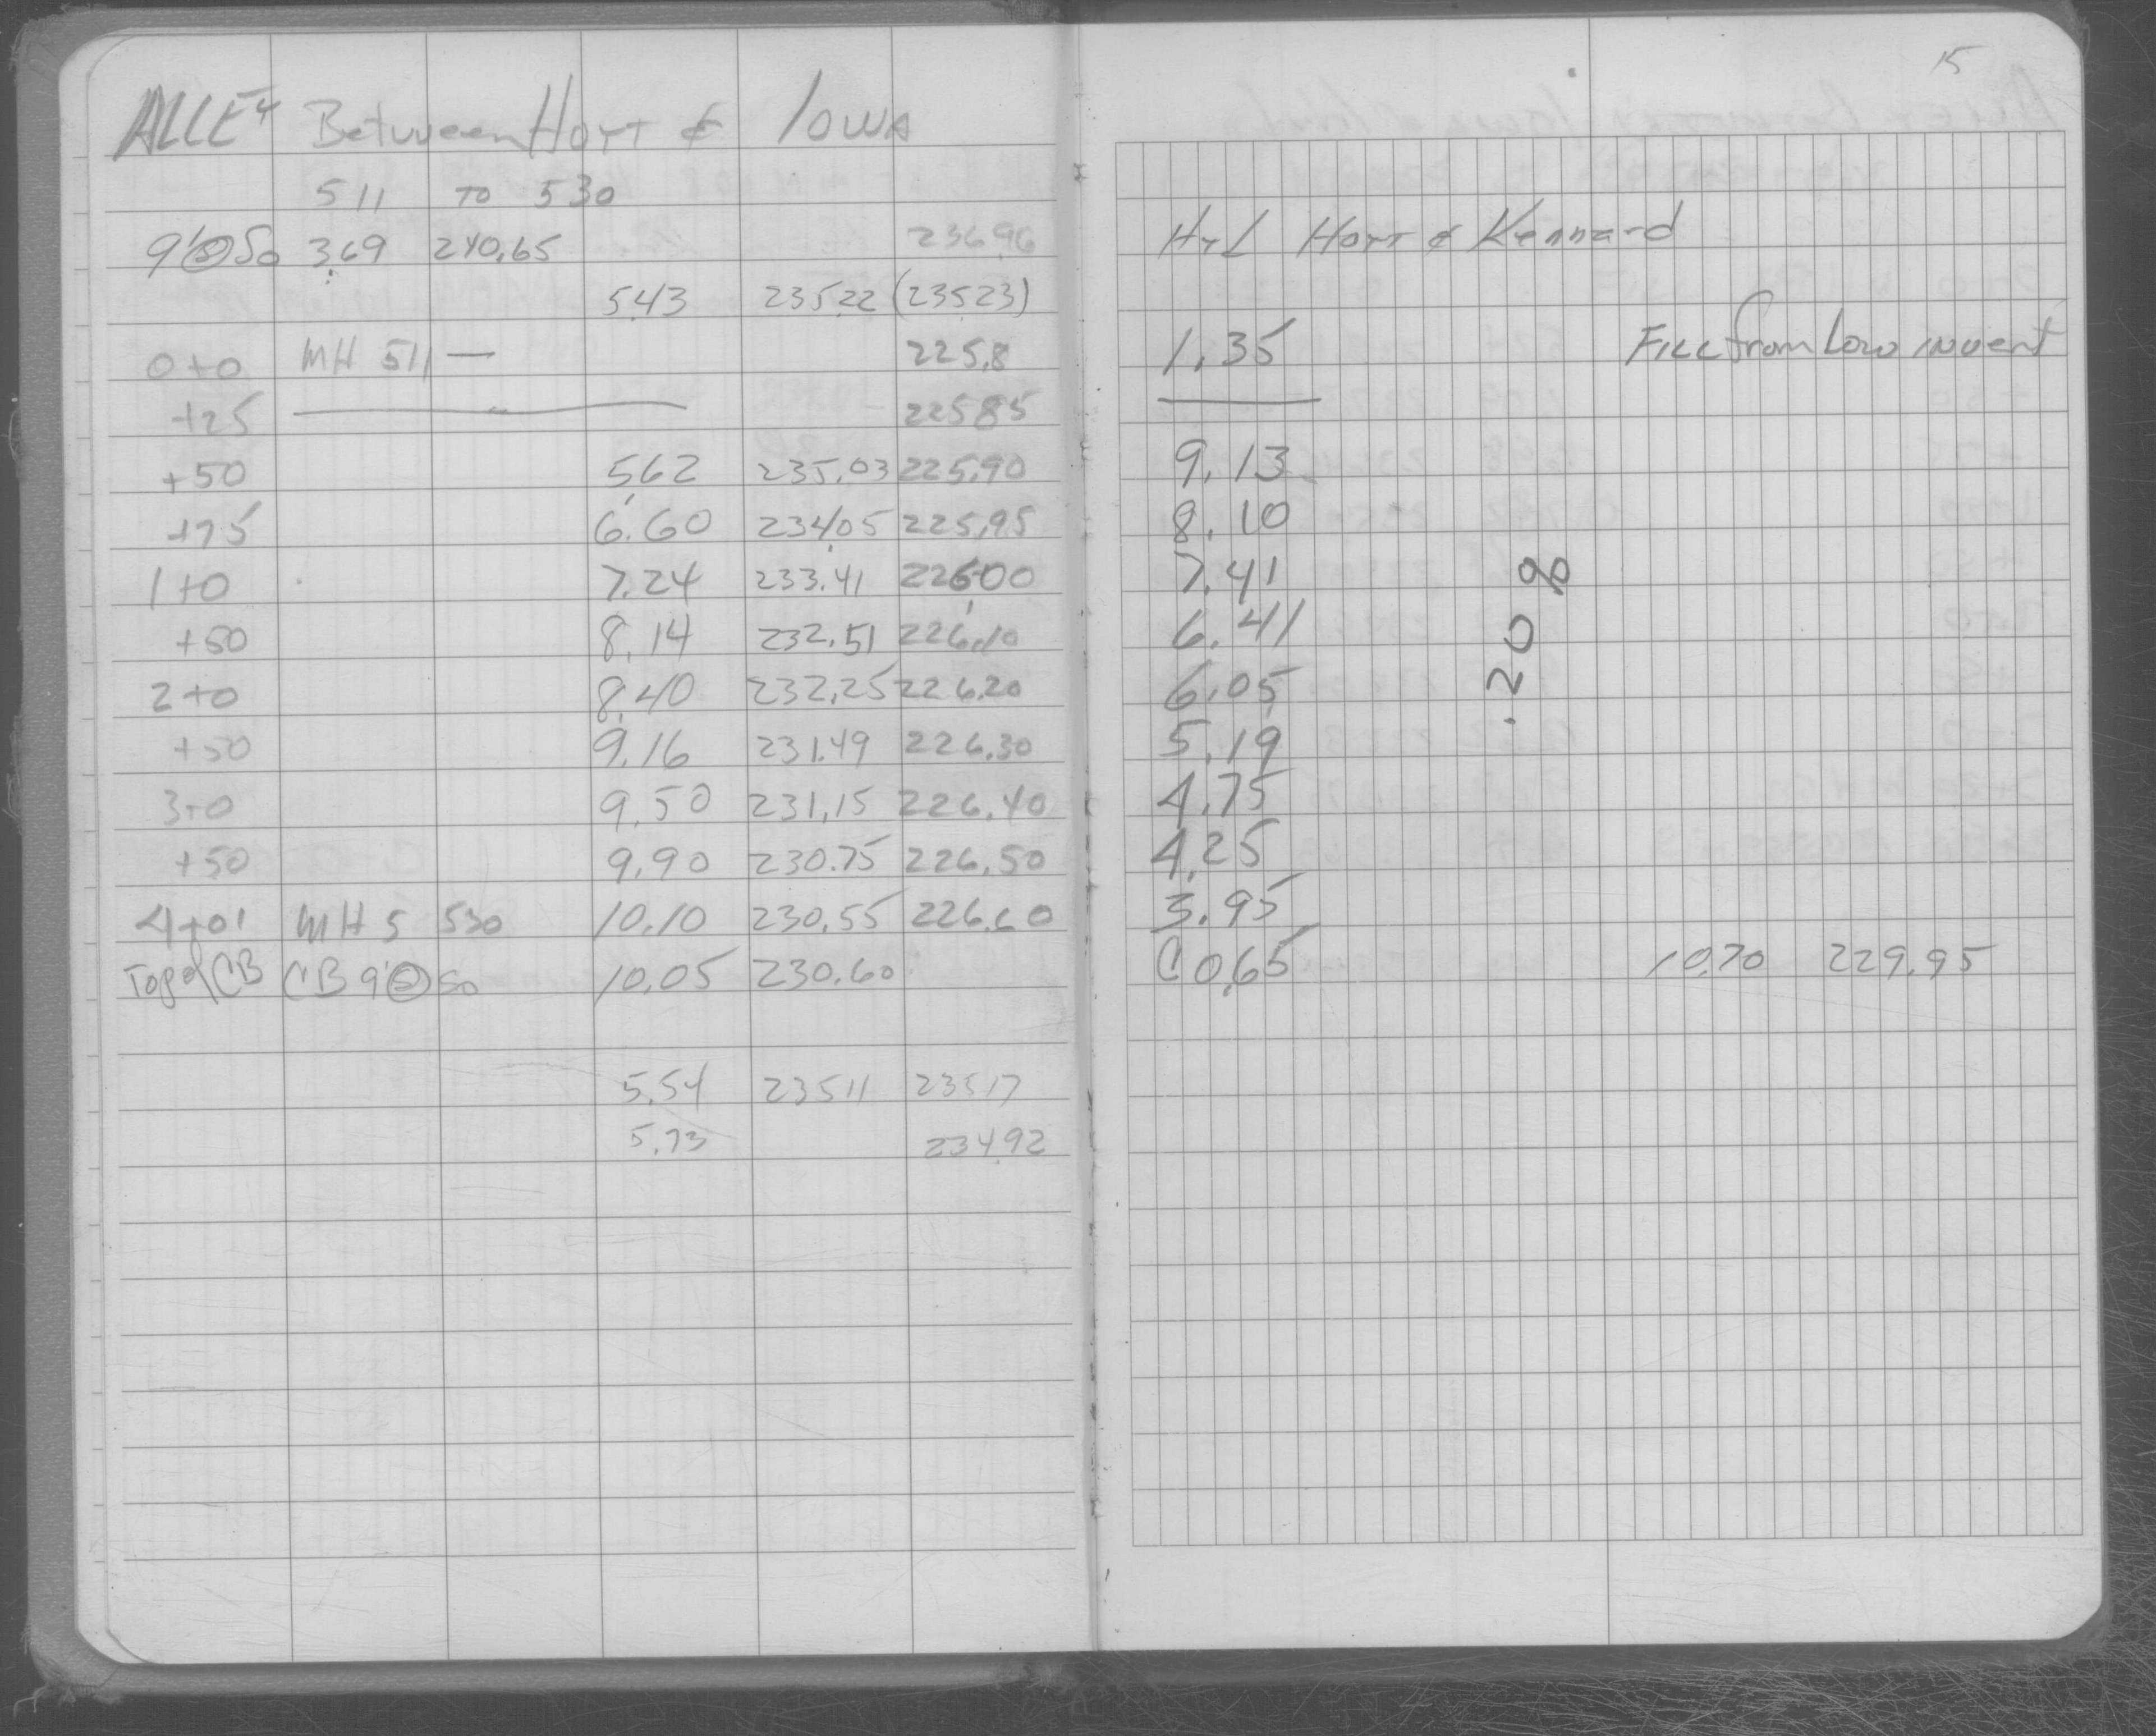 ALLEY Between Hoyt & Iowa
511 TO 530
9'⑤So 3.69 240.65 236.96
5.43 235.22 (235.23)
0+0 MH 511 — 225.8
+25 225.85
+50 5.62 235.03 225.90
+75 6.60 234.05 225.95
1+0 7.24 233.41 226.00
+50 8.14 232.51 226.10
2+0 8.40 232.25 226.20
+50 9.16 231.49 226.30
3+0 9.50 231.15 226.40
+50 9.90 230.75 226.50
4+01 MH 5 530 10.10 230.55 226.60
Top of CB CB 9'⑤So 10.05 230.60
5.54 235.11 235.17
5.73 234.92
15
Hyd Hoyt & Kennard
1.35 Fill from Low invert
9.13
8.10
7.41
6.41
6.05
5.19
4.75
4.25
3.95
C 0.65 10.70 229.95
.20 %